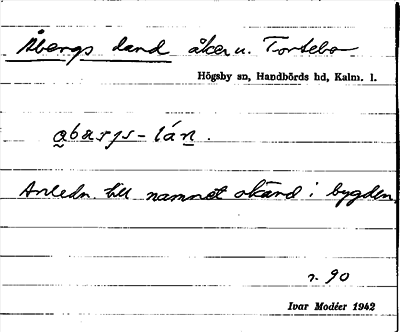 Åbergs land åker u. Tortebo
Högsby sn, Handbörds hd, Kalm. l.
a̰bærjs-lán̲.
Anledn. till namnet okänd i bygden.
r. 90
Ivar Modéer 1942